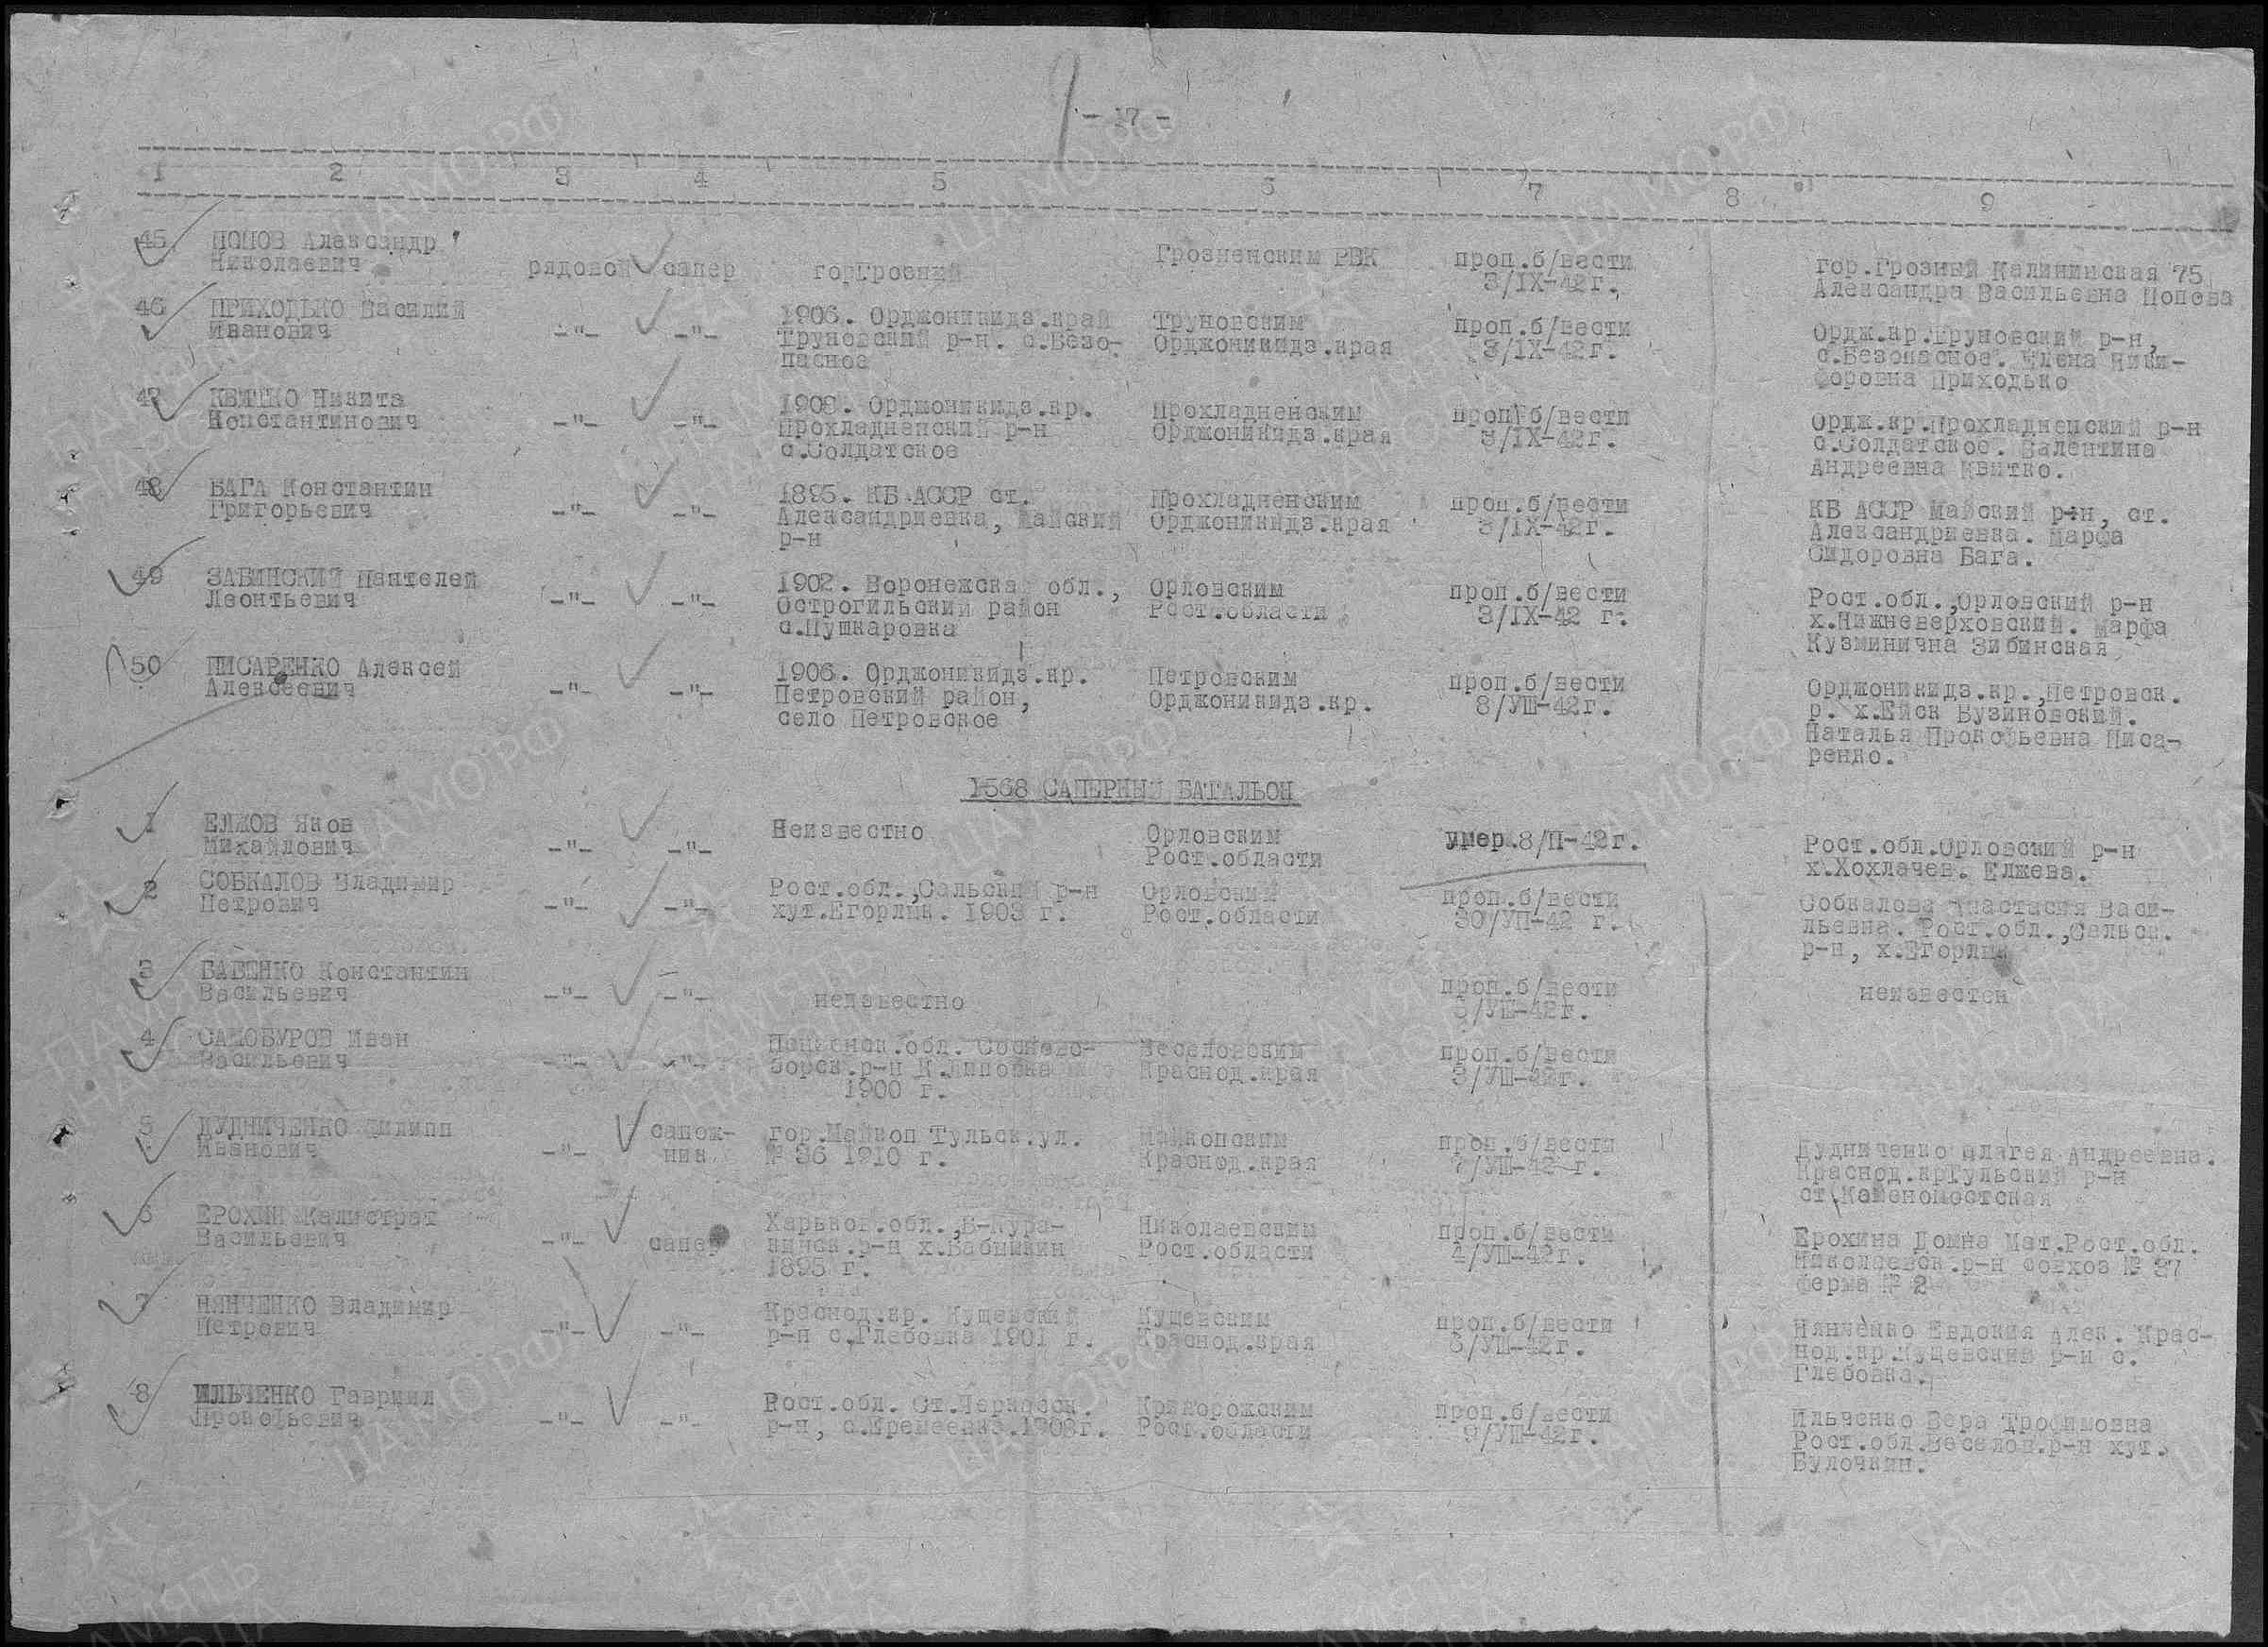 - 17 -
1 2 3 4 5 6 7 8 9
45 ПОПОВ Александр Николаевич рядовой сапер гор.Грозный Грозненским РВК проп.б/вести 3/IX-42г. гор.Грозный Калининская 75
Александра Васильевна Попова
46 ПРИХОДЬКО Василий
Иванович -"- -"- 1906. Орджоникидз.край
Труновский р-н. с.Безо-
пасное
Труновским
Орджоникидз.края
проп.б/вести
3/IX-42г.
Ордж.кр.Труновский р-н,
с.Безопасное. Елена Ники-
форовна Приходько
47 КВИТКО Никита
Константинович -"- -"-
1908. Орджоникидз.кр.
Прохладненский р-н
с.Солдатское
Прохладненским
Орджоникидз.края
проп.б/вести
3/IX-42г.
Ордж.кр.Прохладненский р-н
с.Солдатское. Валентина
Андреевна Квитко.
48 БАГА Константин
Григорьевич -"- -"-
1895. КБ АССР ст.
Александриевка, Майский
р-н
Прохладненским
Орджоникидз.края
проп.б/вести
3/IX-42г.
КБ АССР Майский р-н, ст.
Александриевка. Марфа
Сидоровна Бага.
49 ЗАБИНСКИЙ Пантелей
Леонтьевич -"- -"-
1902. Воронежска обл.,
Острогильский район
с.Пушкаровка
Орловским
Рост.области
проп.б/вести
3/IX-42 г.
Рост.обл.,Орловский р-н
х.Нижневерховский. Марфа
Кузминична Зибинская
50 ПИСАРЕНКО Алексей
Алексеевич -"- -"-
1906. Орджоникидз.кр.
Петровский район,
село Петровское
Петровским
Орджоникидз.кр.
проп.б/вести
8/УШ-42г.
Орджоникидз.кр.,Петровск.
р. х.Ейск Бузиновский.
Наталья Прокофьевна Писа-
ренко.
1568 САПЕРНЫЙ БАТАЛЬОН
1 ЕЛЖОВ Яков
Михайлович -"- -"-
Неизвестно
Орловским
Рост.области
умер.8/П-42г.
Рост.обл.Орловский р-н
х.Хохлачев. Елжева.
2 СОБКАЛОВ Владимир
Петрович -"- -"-
Рост.обл.,Сальский р-н
хут.Егорлык. 1903 г.
Орловский
Рост.области
проп.б/вести
30/УП-42 г.
Собкалова Анастасия Васи-
льевна. Рост.обл.,Сальск.
р-н, х.Егорлык
3 БАБЕНКО Константин
Васильевич -"- -"-
неизвестно
проп.б/вести
3/УШ-42г.
неизвестен
4 САМОБУРОВ Иван
Васильевич -"- -"-
Пензенск.обл. Сосново-
борск.р-н Н.Липовка
1900 г.
Веселовским
Краснод.края
проп.б/вести
3/УШ-42г.
5 ДУДНИЧЕНКО Филипп
Иванович -"- сапож-
ник
гор.Майкоп Тульск.ул.
№ 36 1910 г.
Майкопским
Краснод.края
проп.б/вести
7/УШ-42 г.
Дудниченко Плагея Андреевна.
Краснод.крТульский р-н
ст.Каменомостская
6 ЕРОХИН Калистрат
Васильевич -"- сапер
Харьков.обл.,В-Кура-
кинск.р-н х.Бабычкин
1895 г.
Николаевским
Рост.области
проп.б/вести
4/УШ-42г.
Ерохина Домна Мат.Рост.обл.
Николаевск.р-н совхоз № 37
ферма № 2
7 НЯНЧЕНКО Владимир
Петрович -"- -"-
Краснод.кр. Кущевский
р-н с.Глебовка 1901 г.
Кущевским
Краснод.края
проп.б/вести
6/УШ-42г.
Нянченко Евдокия Алек. Крас-
нод.кр.Кущевский р-н с.
Глебовка.
8 ИЛЬЧЕНКО Гавриил
Прокофьевич -"- -"-
Рост.обл. Ст.Черкасск.
р-н, с.Еремеевка.1903г.
Криворожским
Рост.области
проп.б/вести
9/УШ-42г.
Ильченко Вера Трофимовна
Рост.обл.Веселов.р-н хут.
Булочкин.